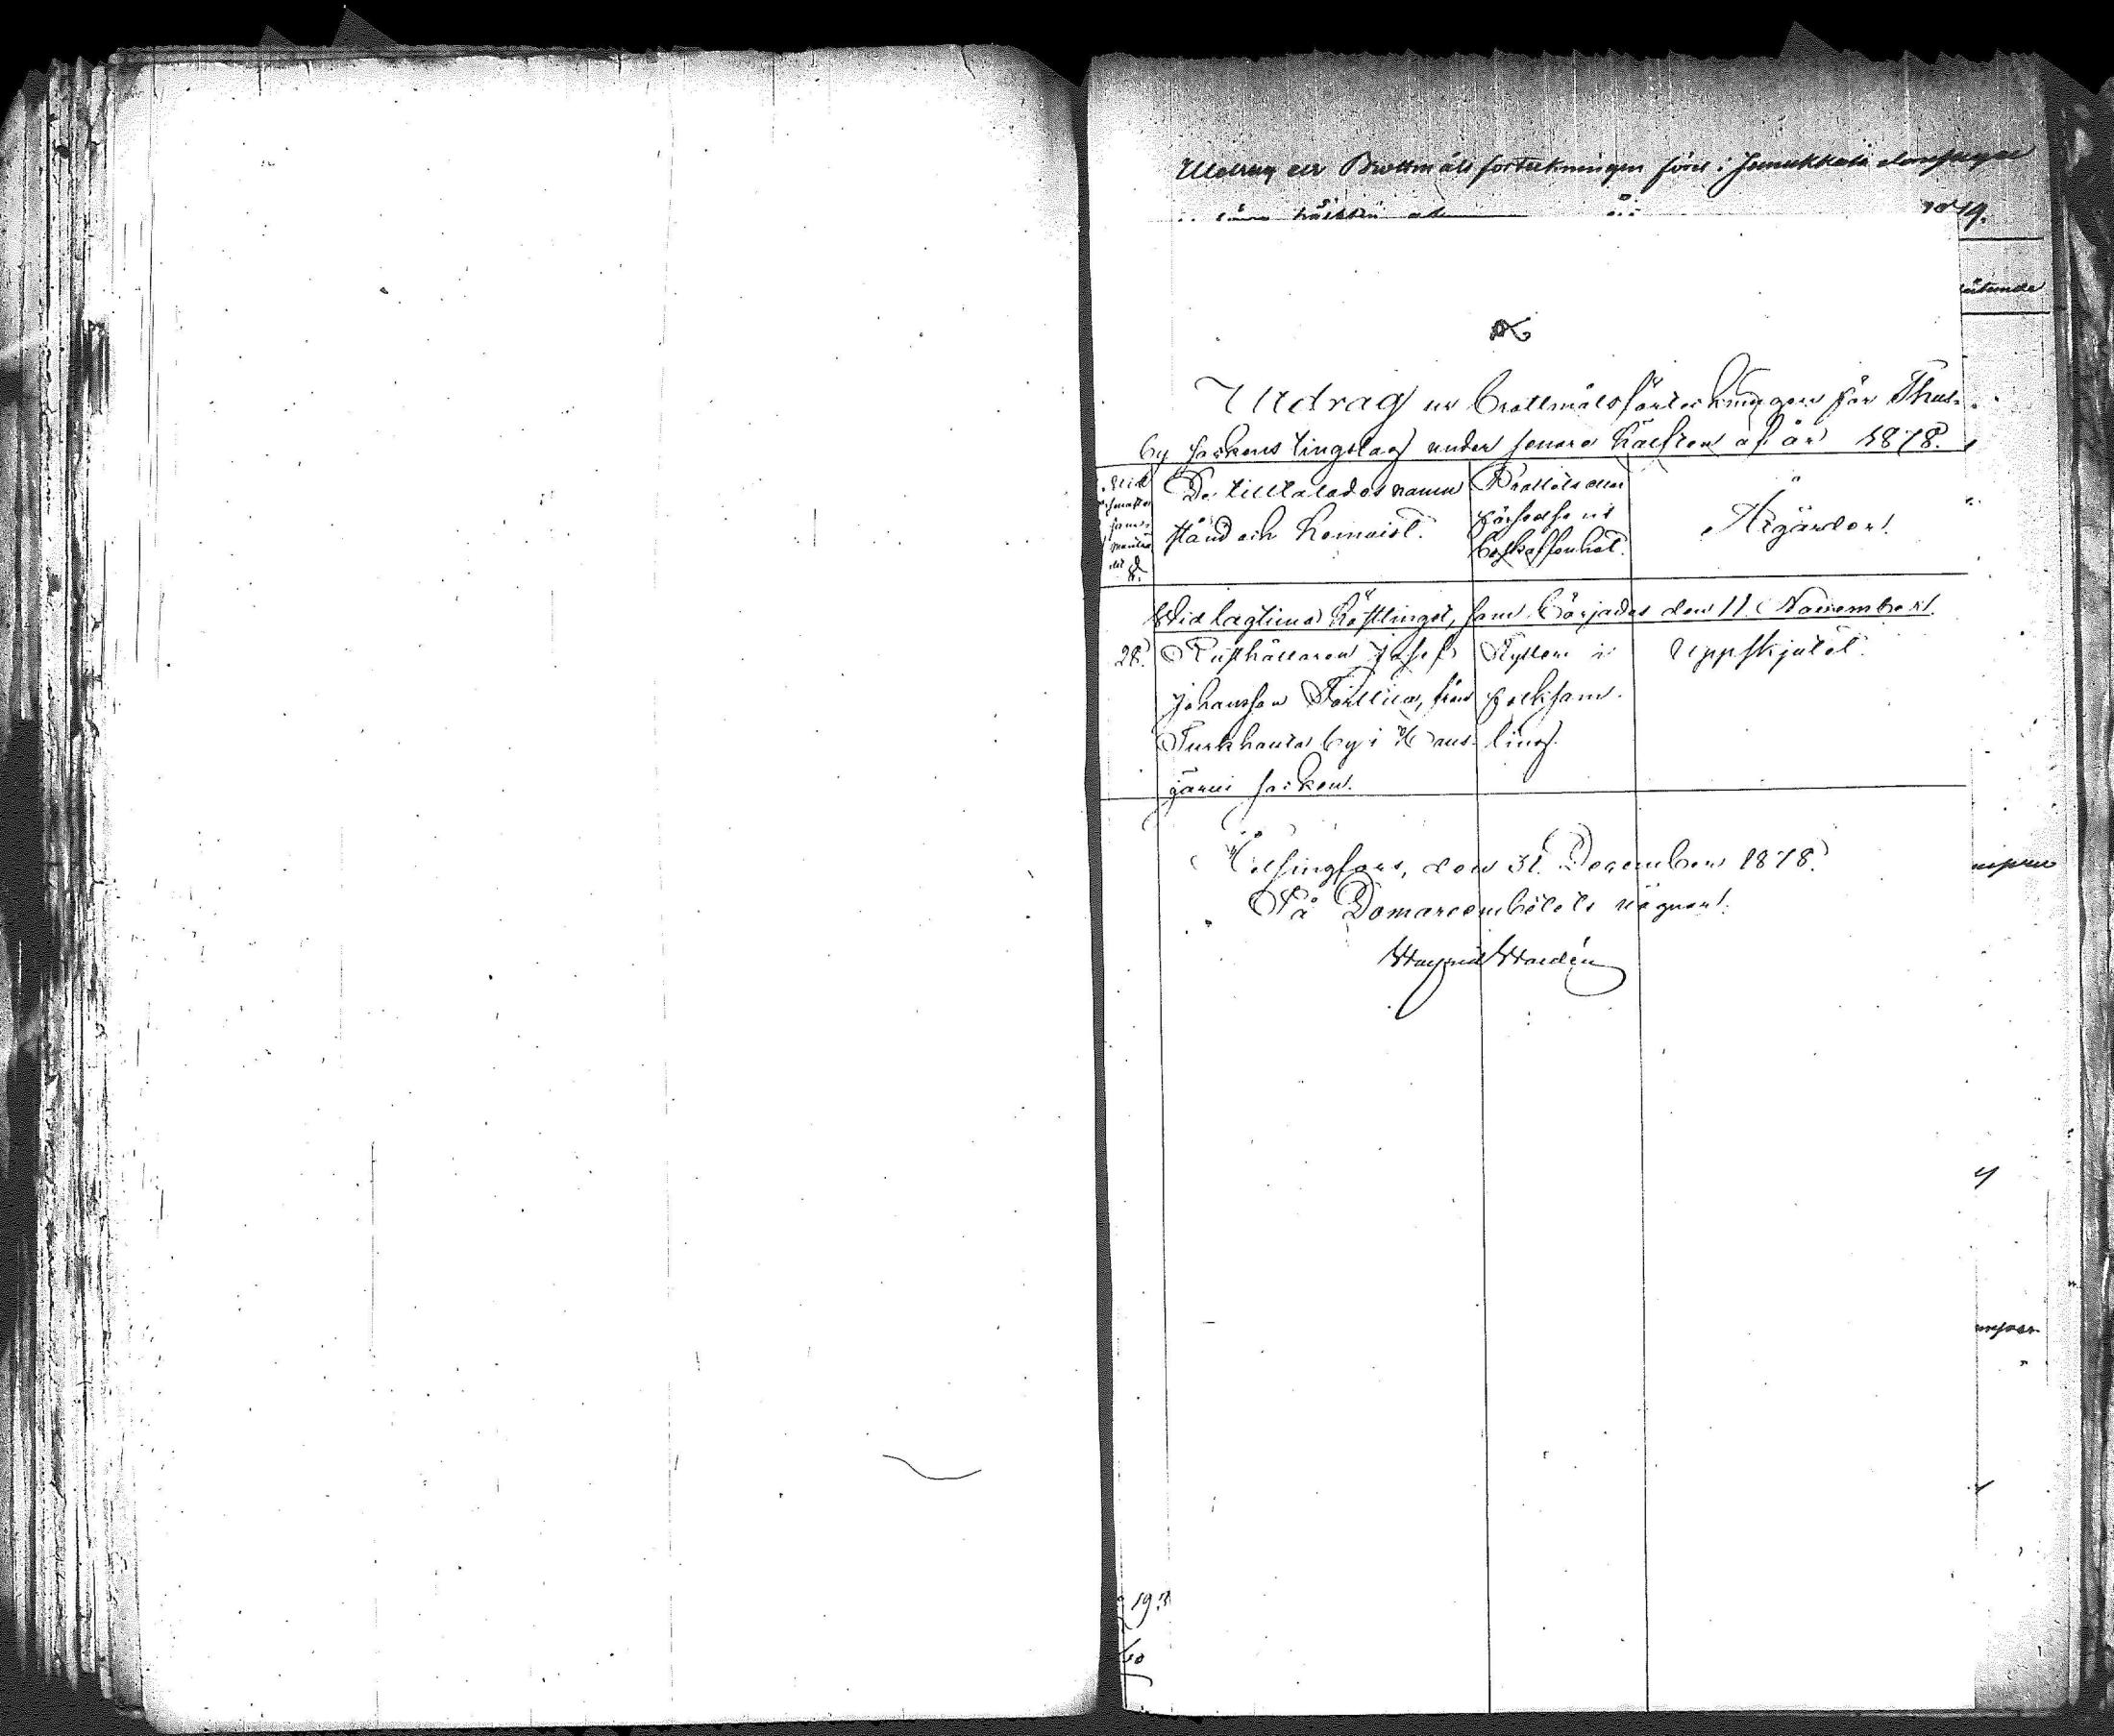 Utdrag ur Brottmåls förteckningen förd i Janakkala
1879.
Utdrag ur brottmålsförteckningen för Thus-
by sockens tingslag under senare hälften af år 1878.
De tilltalades namn
stånd och hemvist.
Brottets eller
förseelsens
beskaffenhet.
Åtgärder.
Wid lagtima hösttinget, som börjades den 11 November.
28. Rusthållaren Josef
Johansson Törlliä, från
Turkhauta by i Haus-
järvi socken.
Fylleri i
folksam-
ling.
Uppskjutet.
Helsingfors, den 31 December 1878.
På Domareembetets vägnar: